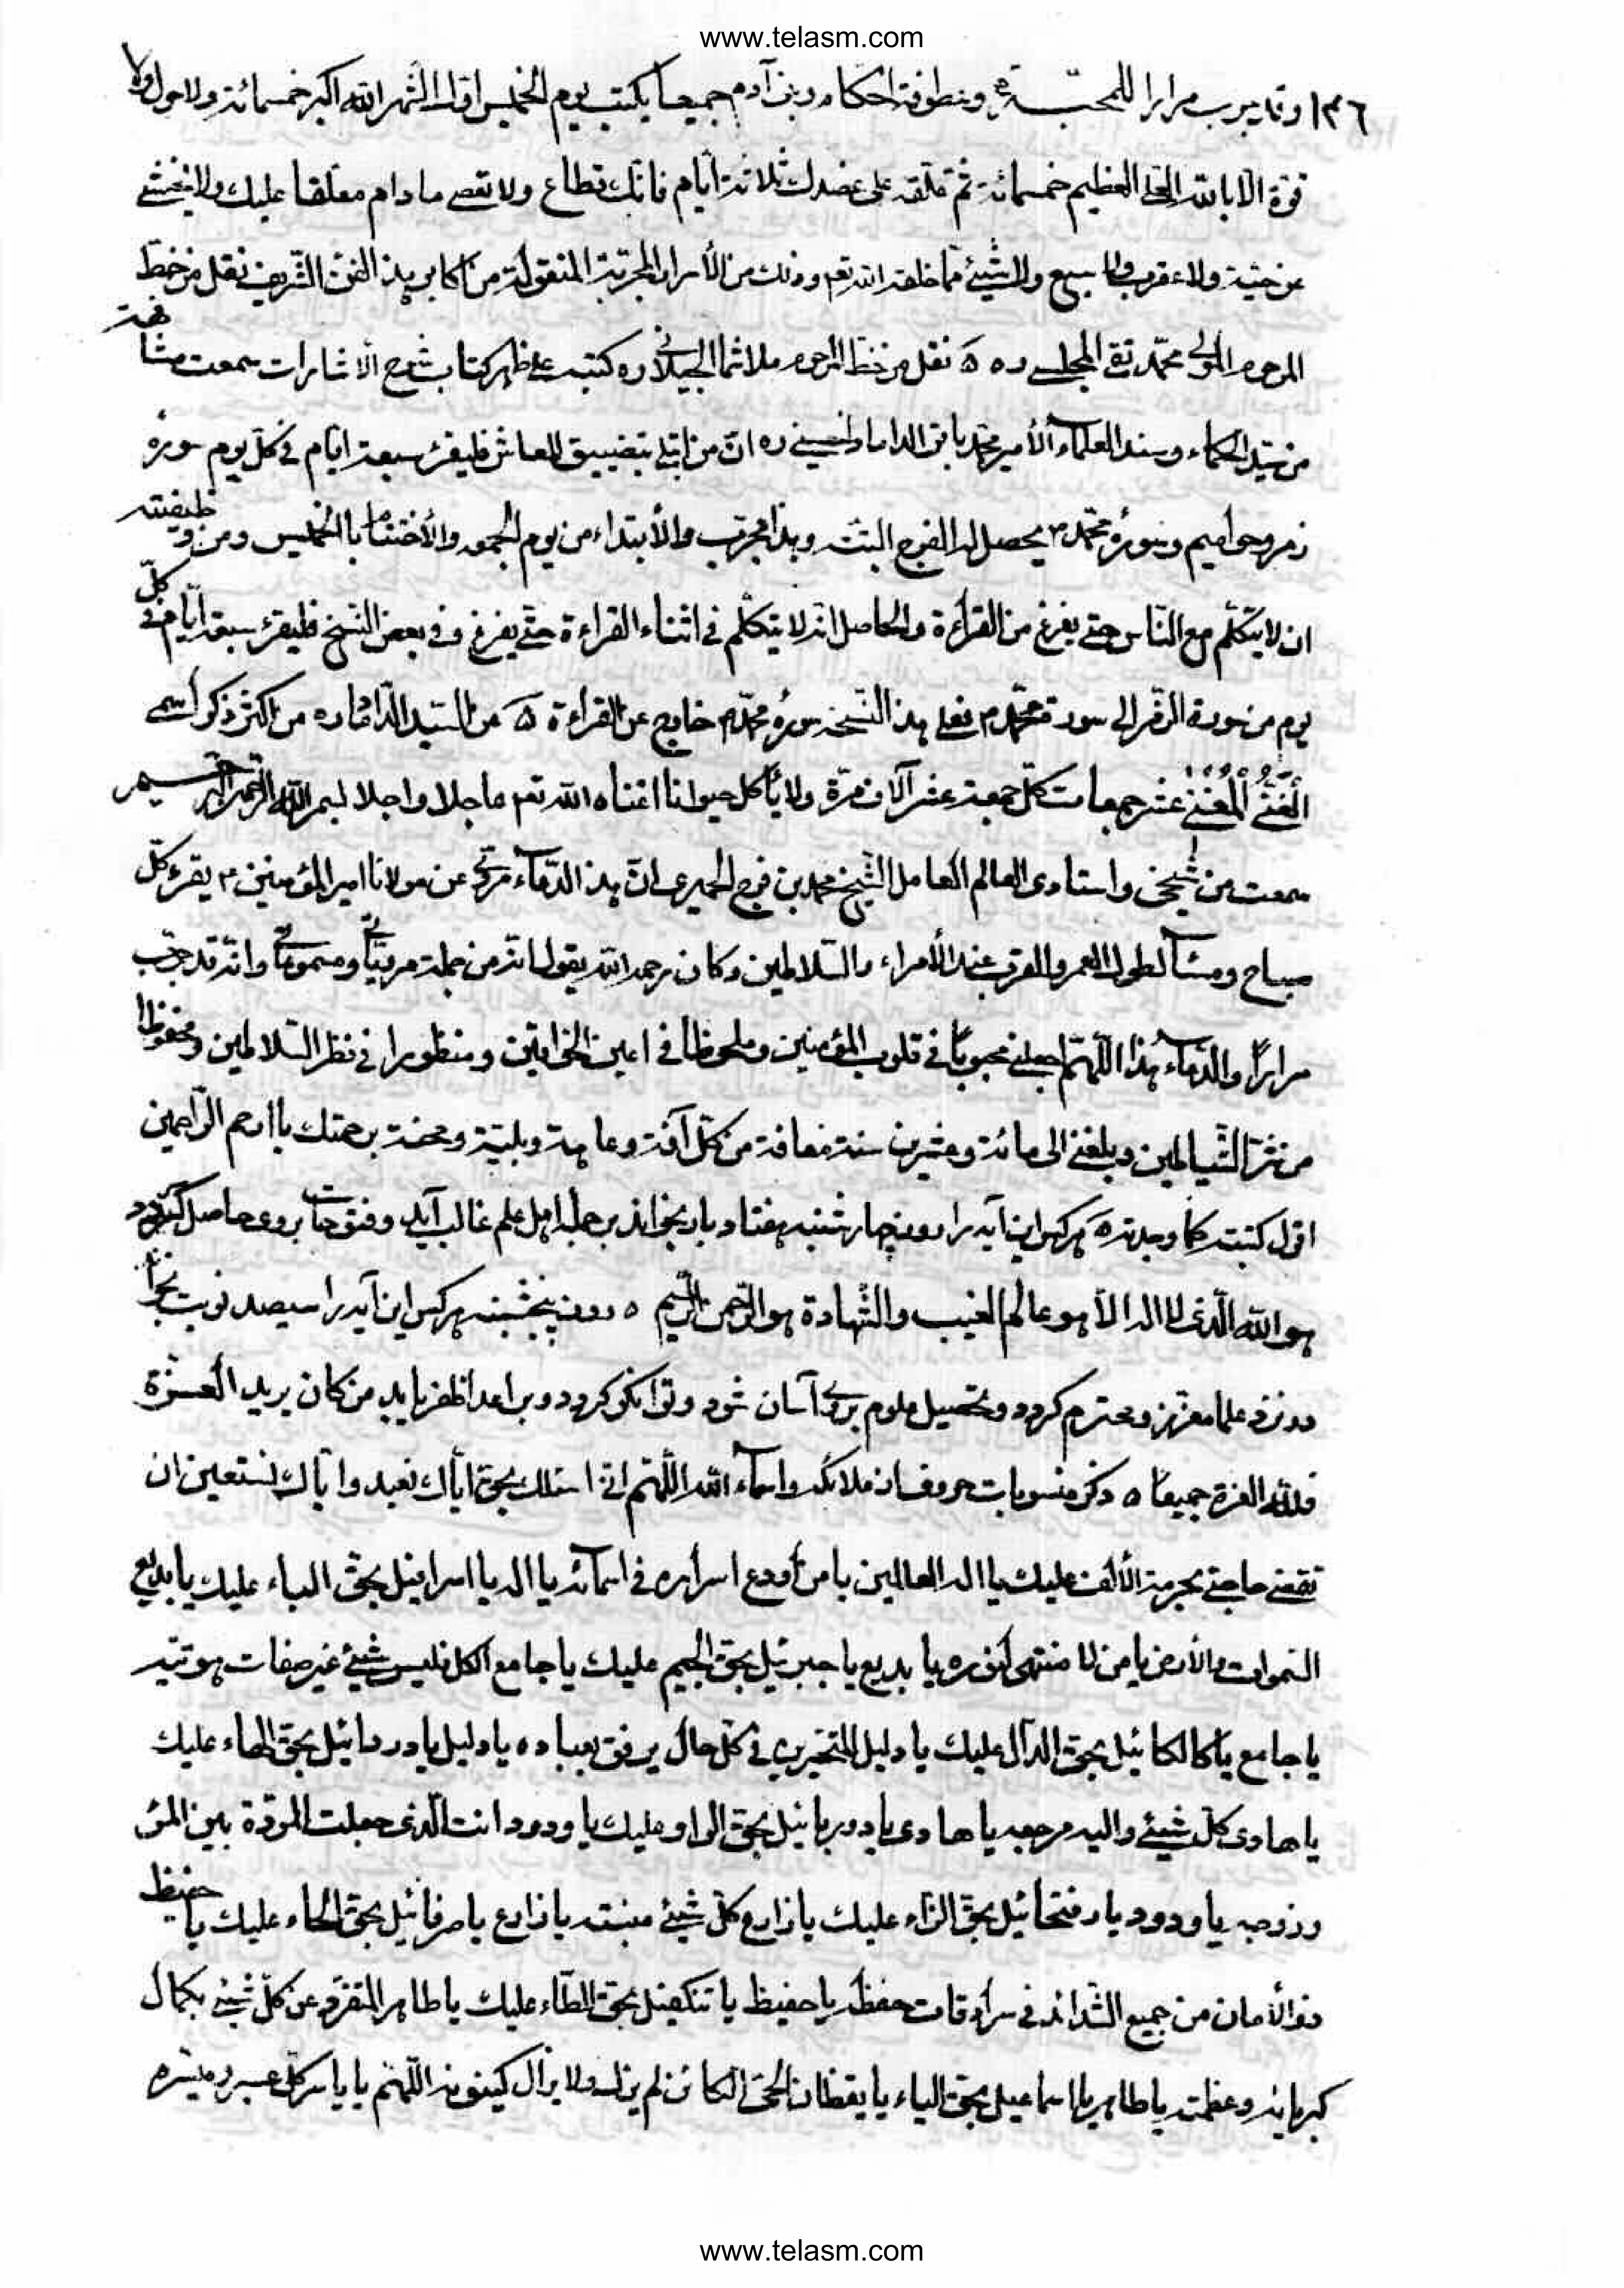 www.telasm.com
١٣٦ وقد جرب مرارا للمحبّة وعطوفة الحكام وبنى آدم جميعا يكتب يوم الخميس اوّل الشهر الله اكبر خمسمائة ولا حول ولا
قوّة الّا بالله العلى العظيم خمسمائة ثم تعلّقه على عضدك ثلاثة ايّام فانّك تطاع ولا تعصى مادام معلّقا عليك ولا تخشى
من حيّة ولا عقرب ولا سبع ولا شيئ ممّا خلقه الله تعم وذلك من الأسرار المجرّبة المنقولة من اكابر هذا الفنّ الشّريف نقل من خطّ
المرحوم المولى محمّد تقى المجلسى ره ٥ نقل من خطّ المرحوم ملا شمسا الجيلانى ره كتبت على ظهر كتاب شرح الاشارات سمعت مشافهة
من سيّد الحكماء وسند العلماء الأمير محمّد باقر الداماد الحسينى ره انّ من ابتلى بتضييق المعاش فليقرء سبعة ايّام فى كلّ يوم سورة
زمر وحواميم وسورة محمّد ص يحصل له الفرج البتّه وهذا مجرّب والأبتداء من يوم الجمعه والأختتام بالخميس ومن وظيفته
ان لا يتكلّم مع النّاس حتى يفرغ من القرائة والحاصل انّه لا يتكلّم فى اثناء القراءة حتى يفرغ وفى بعض النّسخ فليقرء سبعة ايّام فى كلّ
يوم من سورة الزّمر الى سورة محمّد ص فعلى هذا النّسخه سورة محمّد ص خارج عن القراءة ٥ عن السّيد الدّاماد ره من اكثر ذكر اسمى
الْغَنِىُّ الْمُغْنِى عشر جمعات كلّ جمعة عشر آلاف مرّة ولا يأكل حيوانا اغناه الله تعم عاجلا واجلا بسم الله الرّحمن الرّحيم
سمعت من شيخى واستادى العالم العامل الشّيخ محمد بن فرج الحميرى انّ هذا الدّعاء مروىّ عن مولانا امير المؤمنين ع يقرء كلّ
صباح ومساء لطول العمر والقرب عند الأمراء والسّلاطين وكان رحمه الله يقول انّه من جملة مرويّاتى ومسموعاتى وانّه قد جرّب
مرارًا والدّعاء هذا اللّهمّ اجعلنى محبوبًا فى قلوب المؤمنين وملحوظًا فى اعين الخواقين ومنظورا فى نظر السّلاطين ومحفوظا
من شرّ الشّياطين وبلغنى الى مائة وعشرين سنة معافة من كلّ آفة وعاهة وبليّة ومحنة برحمتك يا ارحم الرّاحمين
اقول كتبته كما وجدته ٥ هر كس اين آيه را روز چهارشنبه هفتاد بار بخواند بر جمله اهل علم غالب آيد وفتوحات بر وى حاصل گردد
هو الله الّذى لا اله الّا هو عالم الغيب والشّهادة هو الرّحمن الرّحيم ٥ روز پنجشنبه هر كس اين آيه را سيصد نوبت بخواند
در نزد علما معزّز ومحترم گردد وتحصيل علوم بر وى آسان شود وتوانگر گردد وبر اعدا ظفر يابد من كان يريد العزّة
فللّه العزة جميعًا ٥ ذكر منسوبات حروف از ملائكه واسماء الله اللّهمّ انّى اسئلك بحق ايّاك نعبد وايّاك نستعين ان
تقضى حاجتى بحرمة الألف عليك يا اله العالمين يا من أودع اسراره فى اسمائه يا اله يا اسرافيل بحقّ الباء عليك يا بديع
السّموات والأرض يا من لا منتهى لنوره يا بديع يا جبرئيل بحقّ الجيم عليك يا جامع الكل فليس شيئ غير صفات هويّته
يا جامع يا كلكائيل بحق الدال عليك يا دليل المتحيرين فى كلّ حال يرفق بعباده يا دليل يا دردائيل بحق الهاء عليك
يا هادى كلّ شيئ واليه مرجعه يا هادى يا دوريائيل بحق الواو عليك يا ودود انت الّذى جعلت المودّة بين المرء
وزوجه يا ودود يا رفتحائيل بحق الزّاء عليك يا زارع كلّ شيئ منبته يا زارع يا صرفائيل بحق الحاء عليك يا حفيظ
ذو الأمان من جميع الشّدائد فى سرادقات حفظه يا حفيظ يا تنكفيل بحق الطّاء عليك يا طاهر المتفرّد عن كلّ شيئ بكمال
كبريائه وعظمته يا طاهر يا اسماعيل بحق الياء يا يقظان الحىّ الكائن لم يزل ولا يزال كينونة اللّهمّ يا ياسر كلّ عسر وميسّره
www.telasm.com